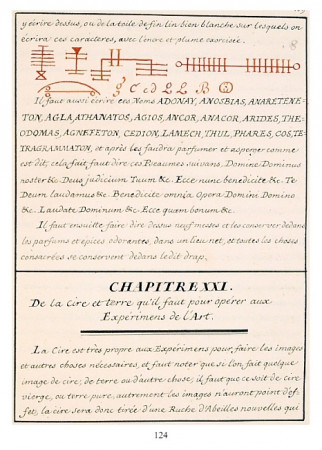 y écrire dessus, ou de la toile de fin lin bien blanche sur lesquels on
écrira ces caractères, avec l'encre et plume exorcisée.
Il faut aussi écrire ces Noms ADONAY, ANOSBIAS, ANARETENE-
TON, AGLA, ATHANATOS, AGIOS, ANCOR, ANACOR, ARIDES, THE-
ODOMAS, AGNEFETON, CEDION, LAMECH, THUL, PHARES, COS, TE-
TRAGRAMMATON, et après les faudra parfumer et asperger comme
est dit; cela fait, faut dire ces Pseaumes suivans. Domine Dominus
noster &c. Deus judicium Tuum &c. Ecce nunc benedicite &c. Te
Deum laudamus &c. Benedicite omnia Opera Domini Domino
&c. Laudate Dominum &c. Ecce quam bonum &c.
Il faut ensuitte faire dire dessus neuf messes et les conserver dedans
les parfums et épices odorantes, dans un lieu net, et toutes les choses
consacrées se conservent dedans le dit drap.
CHAPITRE XXI.
De la Cire et terre qu'il faut pour opérer aux
Expérimens de l'Art.
La Cire est très propre aux Expérimens pour faire les images
et autres choses nécessaires, et faut noter que si l'on fait quelque
image de cire, de terre ou d'autre chose, il faut que ce soit de cire
vierge, ou terre pure, autrement les images n'auront point d'ef-
fet, la cire sera donc tirée d'une Ruche d'Abeilles nouvelles qui
124